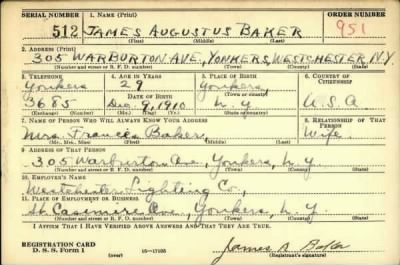 SERIAL NUMBER 1. NAME (Print) ORDER NUMBER
512 JAMES AUGUSTUS BAKER 951
(First) (Middle) (Last)
2. ADDRESS (Print)
305 WARBURTON AVE., YONKERS, WESTCHESTER N.Y.
(Number and street or R. F. D. number) (Town) (County) (State)
3. TELEPHONE 4. AGE IN YEARS 5. PLACE OF BIRTH 6. COUNTRY OF CITIZENSHIP
Yonkers 29 Yonkers
DATE OF BIRTH (Town or county)
3685 Dec. 9, 1910 N.Y. U.S.A
(Exchange) (Number) (Mo.) (Day) (Yr.) (State or country)
7. NAME OF PERSON WHO WILL ALWAYS KNOW YOUR ADDRESS 8. RELATIONSHIP OF THAT PERSON
Mrs. Frances Baker, Wife
(Mr., Mrs., Miss) (First) (Middle) (Last)
9. ADDRESS OF THAT PERSON
305 Warburton Ave, Yonkers, N.Y
(Number and street or R. F. D. number) (Town) (County) (State)
10. EMPLOYER'S NAME
Westchester Lighting Co.,
11. PLACE OF EMPLOYMENT OR BUSINESS
St. Casimere Ave., Yonkers, N.Y.
(Number and street or R. F. D. number) (Town) (County) (State)
I AFFIRM THAT I HAVE VERIFIED ABOVE ANSWERS AND THAT THEY ARE TRUE.
REGISTRATION CARD
D. S. S. Form 1 (over) 16—17105 James A Baker
(Registrant's signature)